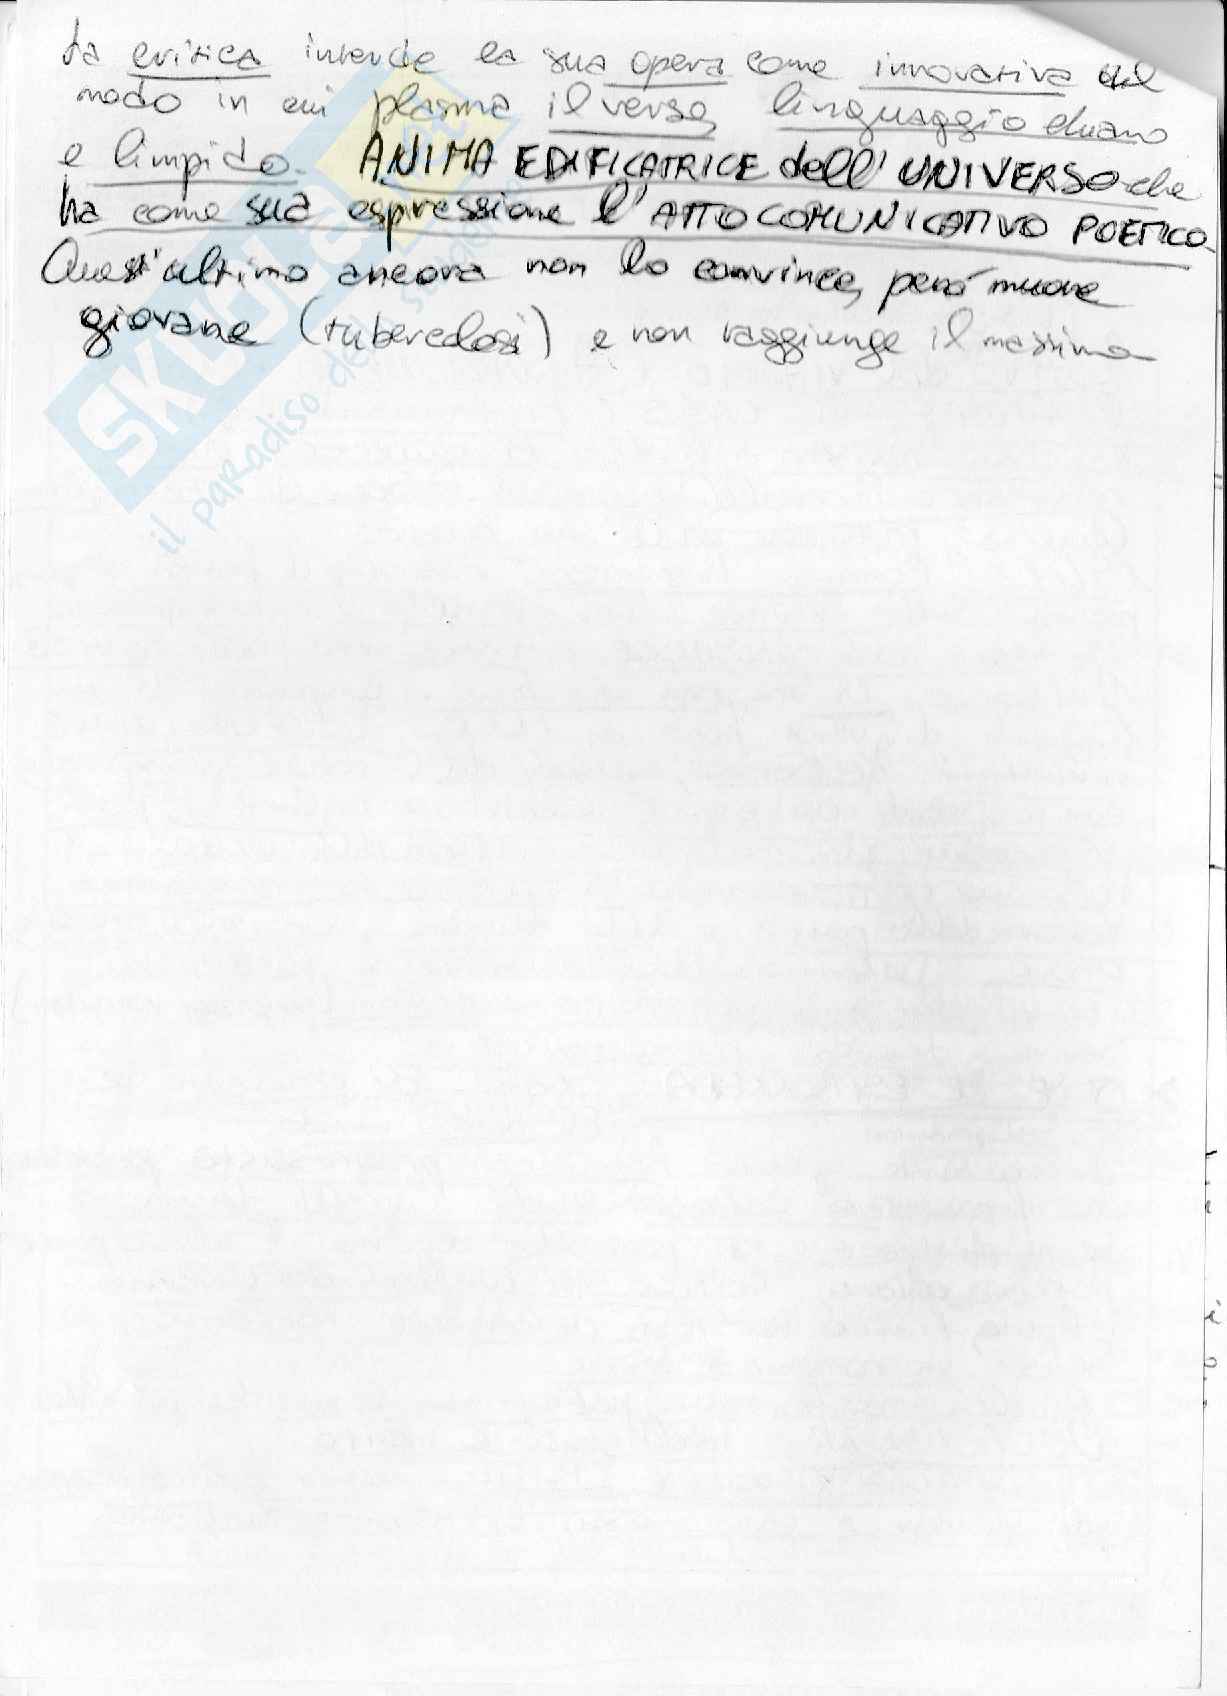 La critica intende la sua opera come innovativa nel
modo in cui plasma il verso, linguaggio chiaro
e limpido. ANIMA EDIFICATRICE dell'UNIVERSO che
ha come sua espressione l'ATTO COMUNICATIVO POETICO.
Quest'ultimo ancora non lo convince, però muore
giovane (tubercolosi) e non raggiunge il massimo
SKUOLA.net
il paradiso dello studente